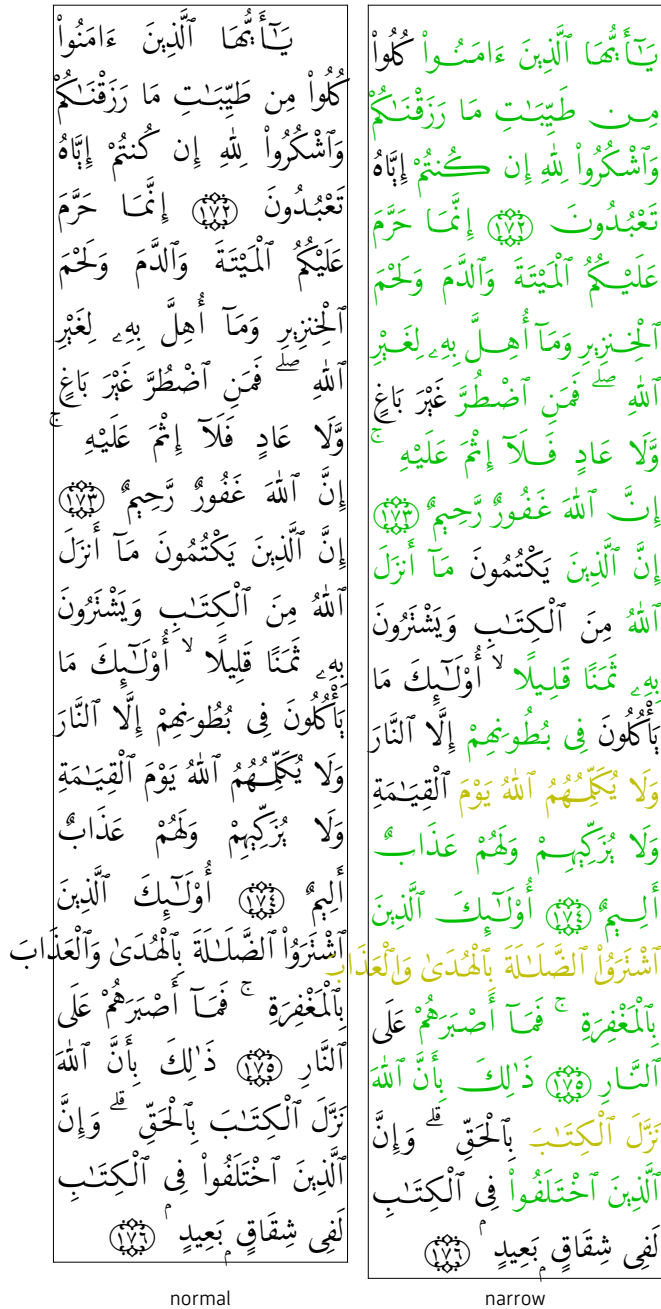 يَـٰٓأَيُّهَا ٱلَّذِينَ ءَامَنُوا۟
كُلُوا۟ مِن طَيِّبَـٰتِ مَا رَزَقْنَـٰكُمْ
وَٱشْكُرُوا۟ لِلَّهِ إِن كُنتُمْ إِيَّاهُ
تَعْبُدُونَ ١٧٢ إِنَّمَا حَرَّمَ
عَلَيْكُمُ ٱلْمَيْتَةَ وَٱلدَّمَ وَلَحْمَ
ٱلْخِنزِيرِ وَمَآ أُهِلَّ بِهِۦ لِغَيْرِ
ٱللَّهِ ۖ فَمَنِ ٱضْطُرَّ غَيْرَ بَاغٍ
وَلَا عَادٍ فَلَآ إِثْمَ عَلَيْهِ ۚ
إِنَّ ٱللَّهَ غَفُورٌ رَّحِيمٌ ١٧٣
إِنَّ ٱلَّذِينَ يَكْتُمُونَ مَآ أَنزَلَ
ٱللَّهُ مِنَ ٱلْكِتَـٰبِ وَيَشْتَرُونَ
بِهِۦ ثَمَنًا قَلِيلًا ۙ أُو۟لَـٰٓئِكَ مَا
يَأْكُلُونَ فِى بُطُونِهِمْ إِلَّا ٱلنَّارَ
وَلَا يُكَلِّمُهُمُ ٱللَّهُ يَوْمَ ٱلْقِيَـٰمَةِ
وَلَا يُزَكِّيهِمْ وَلَهُمْ عَذَابٌ
أَلِيمٌ ١٧٤ أُو۟لَـٰٓئِكَ ٱلَّذِينَ
ٱشْتَرَوُا۟ ٱلضَّلَـٰلَةَ بِٱلْهُدَىٰ وَٱلْعَذَابَ
بِٱلْمَغْفِرَةِ ۚ فَمَآ أَصْبَرَهُمْ عَلَى
ٱلنَّارِ ١٧٥ ذَٰلِكَ بِأَنَّ ٱللَّهَ
نَزَّلَ ٱلْكِتَـٰبَ بِٱلْحَقِّ ۗ وَإِنَّ
ٱلَّذِينَ ٱخْتَلَفُوا۟ فِى ٱلْكِتَـٰبِ
لَفِى شِقَاقٍۭ بَعِيدٍ ١٧٦
normal
يَـٰٓأَيُّهَا ٱلَّذِينَ ءَامَنُوا۟ كُلُوا۟
مِن طَيِّبَـٰتِ مَا رَزَقْنَـٰكُمْ
وَٱشْكُرُوا۟ لِلَّهِ إِن كُنتُمْ إِيَّاهُ
تَعْبُدُونَ ١٧٢ إِنَّمَا حَرَّمَ
عَلَيْكُمُ ٱلْمَيْتَةَ وَٱلدَّمَ وَلَحْمَ
ٱلْخِنزِيرِ وَمَآ أُهِلَّ بِهِۦ لِغَيْرِ
ٱللَّهِ ۖ فَمَنِ ٱضْطُرَّ غَيْرَ بَاغٍ
وَلَا عَادٍ فَلَآ إِثْمَ عَلَيْهِ ۚ
إِنَّ ٱللَّهَ غَفُورٌ رَّحِيمٌ ١٧٣
إِنَّ ٱلَّذِينَ يَكْتُمُونَ مَآ أَنزَلَ
ٱللَّهُ مِنَ ٱلْكِتَـٰبِ وَيَشْتَرُونَ
بِهِۦ ثَمَنًا قَلِيلًا ۙ أُو۟لَـٰٓئِكَ مَا
يَأْكُلُونَ فِى بُطُونِهِمْ إِلَّا ٱلنَّارَ
وَلَا يُكَلِّمُهُمُ ٱللَّهُ يَوْمَ ٱلْقِيَـٰمَةِ
وَلَا يُزَكِّيهِمْ وَلَهُمْ عَذَابٌ
أَلِيمٌ ١٧٤ أُو۟لَـٰٓئِكَ ٱلَّذِينَ
ٱشْتَرَوُا۟ ٱلضَّلَـٰلَةَ بِٱلْهُدَىٰ وَٱلْعَذَابَ
بِٱلْمَغْفِرَةِ ۚ فَمَآ أَصْبَرَهُمْ عَلَى
ٱلنَّارِ ١٧٥ ذَٰلِكَ بِأَنَّ ٱللَّهَ
نَزَّلَ ٱلْكِتَـٰبَ بِٱلْحَقِّ ۗ وَإِنَّ
ٱلَّذِينَ ٱخْتَلَفُوا۟ فِى ٱلْكِتَـٰبِ
لَفِى شِقَاقٍۭ بَعِيدٍ ١٧٦
narrow